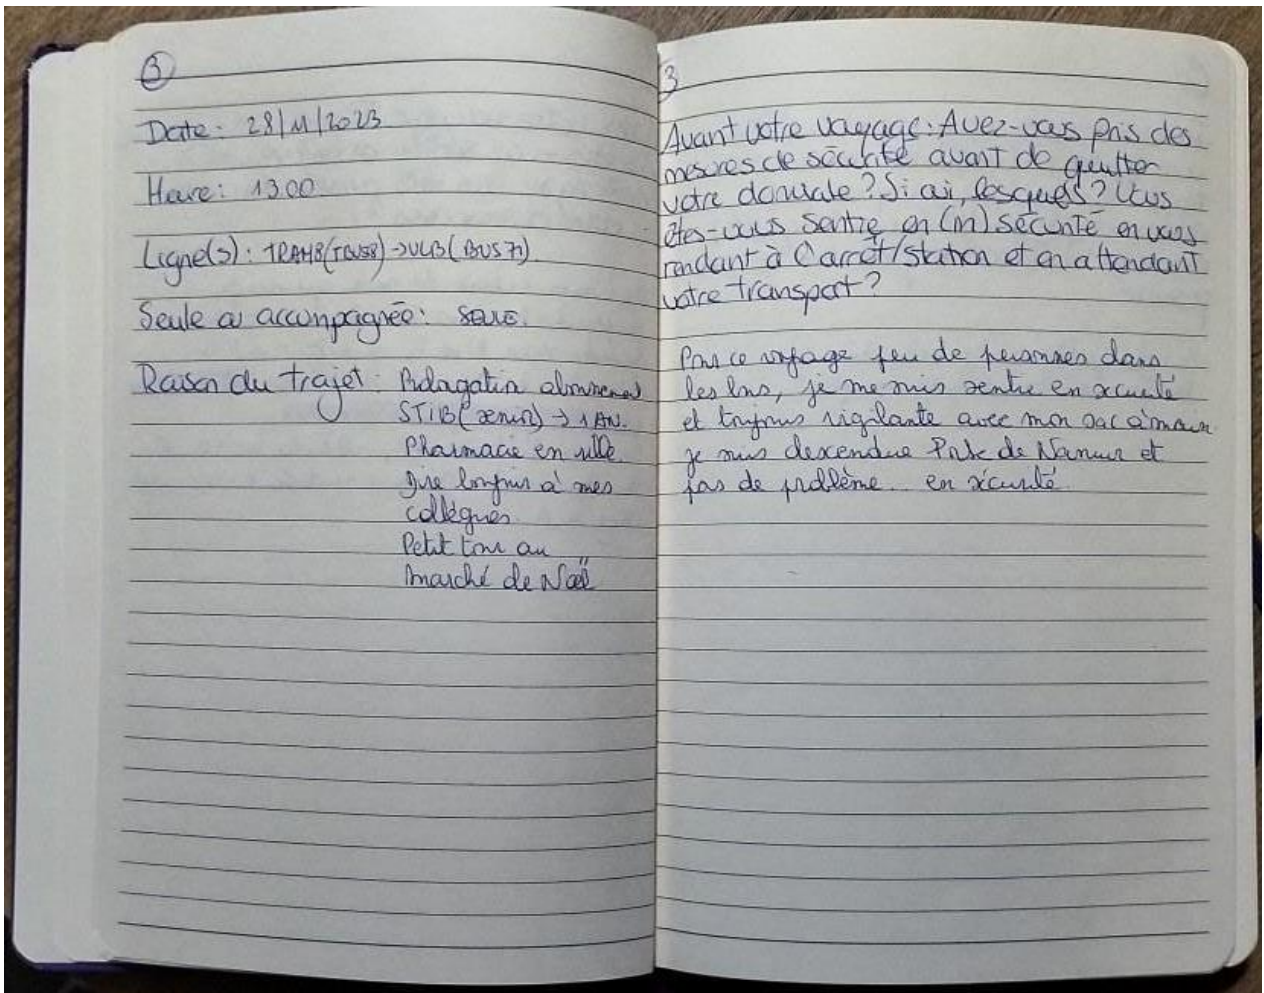 3
Date: 28/11/2023
Heure: 1300
Ligne(s): TRAM8 → ULB (BUS 71)
Seule ou accompagnée: SEULE.
Raison du trajet: Prolagation abonnement
STIB (senior) → 1 AN.
Pharmacie en ville
Dire bonjour à mes
collègues.
Petit tour au
marché de Noël
3
Avant votre voyage: Avez-vous pris des
mesures de sécurité avant de quitter
votre domicile? Si oui, lesquels? Vous
êtes-vous sentie en (in)sécurité en vous
rendant à l'arrêt/station et en attendant
votre transport?
Pour ce voyage peu de personnes dans
les bus, je me suis sentie en sécurité
et toujours vigilante avec mon sac à main.
je suis descendue Porte de Namur et
pas de problème. en sécurité